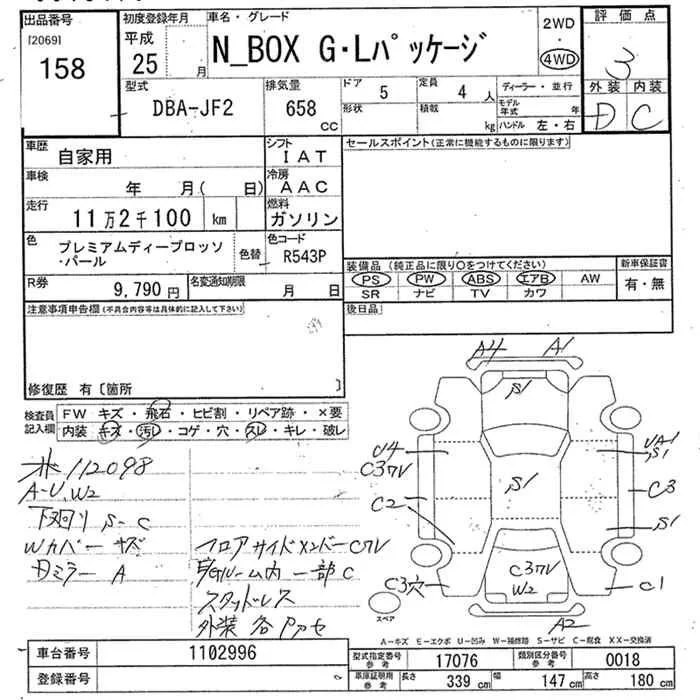 出品番号
[2069]
158
初度登録年月
平成
25 月
車名・グレード
N_BOX G・Lパッケージ
2WD
・
4WD
評価点
3
外装 内装
D C
型式
DBA-JF2
排気量
658
cc
ドア
5
形状
定員
4 人
積載
kg
ディーラー・並行
モデル年式 年
ハンドル 左・右
車歴
自家用
シフト
IAT
車検
年 月( 日)
冷房
AAC
走行
11万2千100 km
燃料
ガソリン
色
プレミアムディープロッソ
・パール
色替
色コード
R543P
R券
9,790円
名変通知期限
月 日
セールスポイント(正常に機能するものに限ります)
装備品 (純正品に限り○をつけてください)
PS PW ABS エアB AW
SR ナビ TV カワ
新車保証書
有・無
後日品
注意事項申告欄(不具合内容等は具体的に記入して下さい)
修復歴 有〔箇所 〕
検査員
記入欄
FW キズ・飛石・ヒビ割・リペア跡・×要
内装 キズ・汚レ・コゲ・穴・スレ・キレ・破レ
112098
A-U,W2
下廻り S-C
Wカバー キズ
ミラー A
フロアサイドメンバーC
ルーム内 一部C
スタッドレス
外装 各
A4 A1
S1
U4
C2
S1
UA1
S1
C3
S1
C3穴
W2
C1
A2
スペア
A-キズ E-エクボ U-凹み W-補修跡 S-サビ C-腐食 XX-交換済
車台番号
1102996
登録番号
型式指定番号
参考
17076
類別区分番号
参考
0018
車庫証明用
参考
長さ 339 cm
幅 147 cm
高さ 180 cm